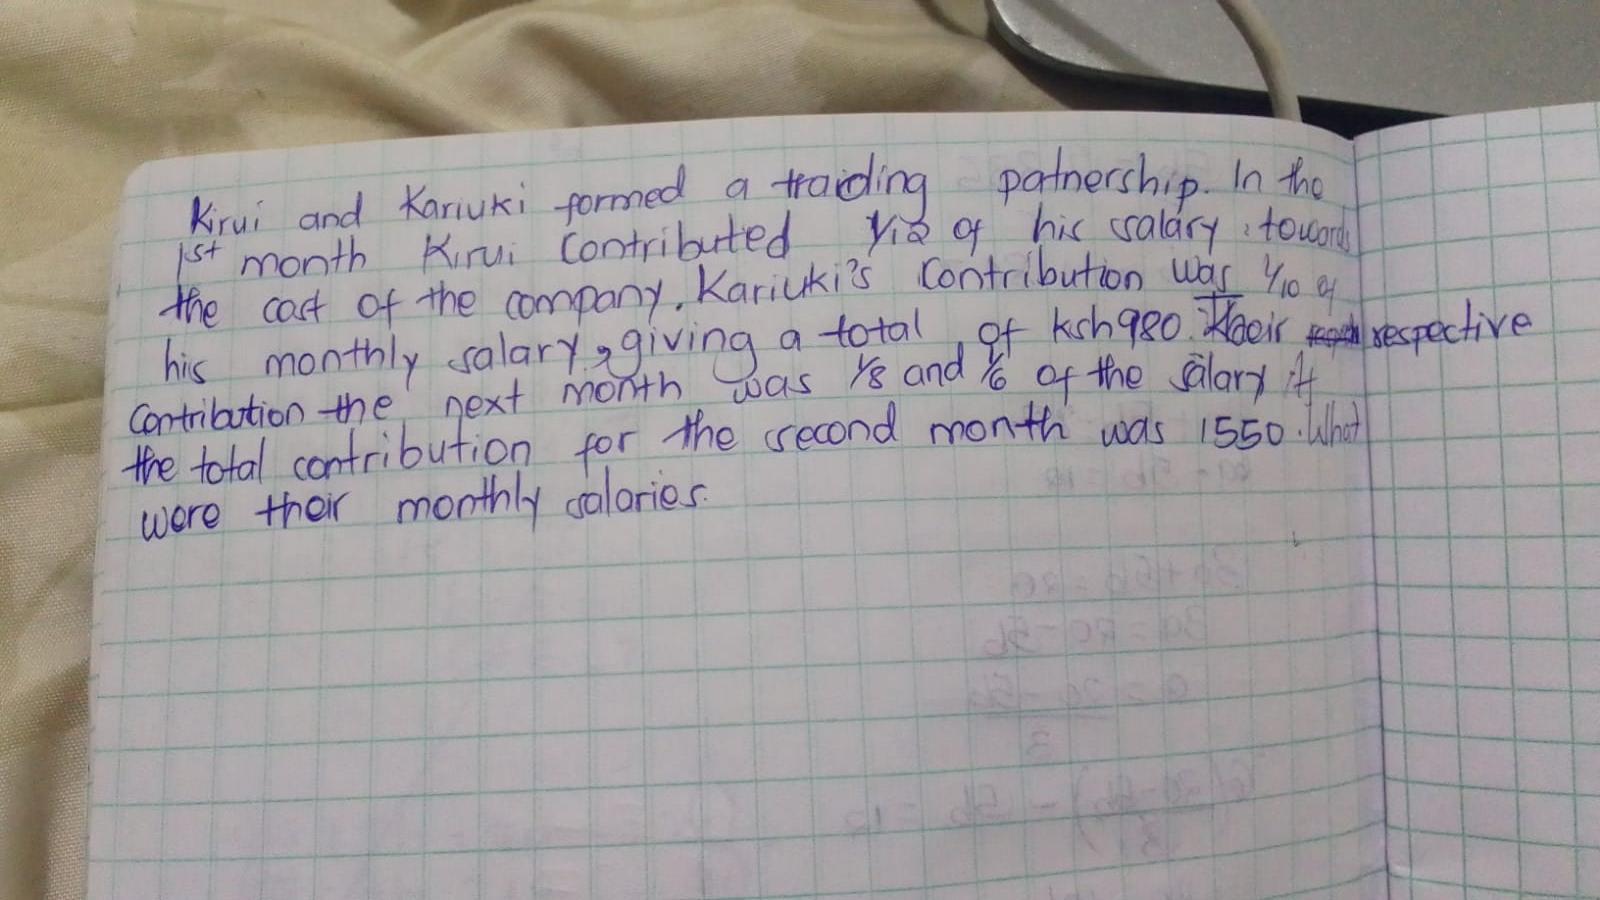 Kirui and Kariuki formed a traiding patnership. In the
1st month Kirui Contributed 1/12 of his salary towards
the cost of the company. Kariuki's Contribution was 1/10 of
his monthly salary, giving a total of ksh 980. Their respective
Contribution the next month was 1/8 and 1/6 of the salary if
the total contribution for the second month was 1550. What
were their monthly salaries.